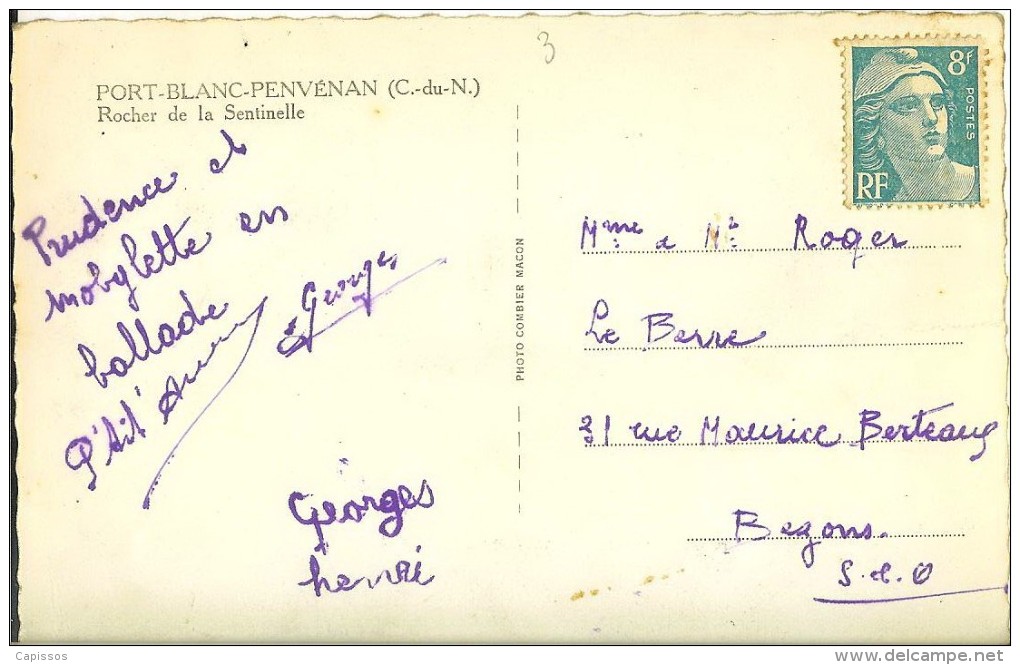 3
PORT-BLANC-PENVÉNAN (C.-du-N.)
Rocher de la Sentinelle
8f
POSTES
RF
Prudence et
mobylette en
ballade
P'tit
Georges
Georges
henri
PHOTO COMBIER MACON
Mme & Mr Roger
Le Berre
31 rue Maurice Berteaux
Bezons.
S.&.O
Capissos
delcampe.net